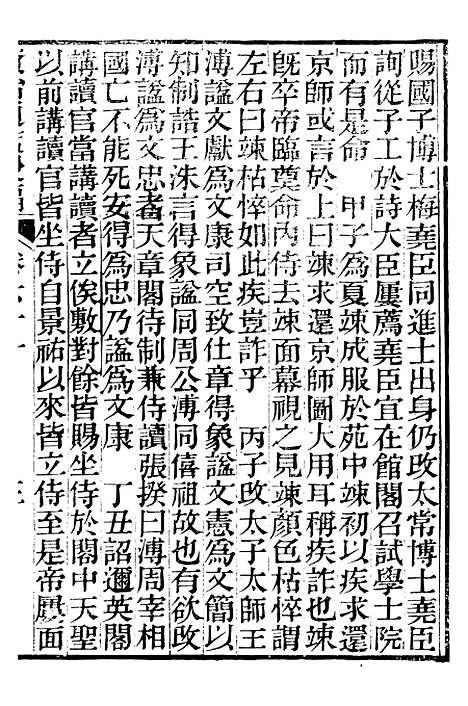 賜國子博士梅堯臣同進士出身仍改太常博士堯臣
詢從子工於詩大臣屢薦堯臣宜在館閣召試學士院
而有是命　甲子爲夏竦成服於苑中竦初以疾求還
京師或言於上曰竦求還京師圖大用耳稱疾詐也竦
旣卒帝臨奠命內侍去竦面幕視之見竦顔色枯悴謂
左右曰竦枯悴如此疾豈詐乎　丙子改太子太師王
溥諡文獻爲文康司空致仕章得象諡文憲爲文簡以
知制誥王洙言得象諡同周公溥同僖祖故也有欲改
溥諡爲文忠者天章閣待制兼侍讀張揆曰溥周宰相
國亡不能死安得爲忠乃諡爲文康　丁丑詔邇英閣
講讀官當講讀者立俟敷對餘皆賜坐侍於閣中天聖
以前講讀官皆坐侍自景祐以來皆立侍至是帝屢面